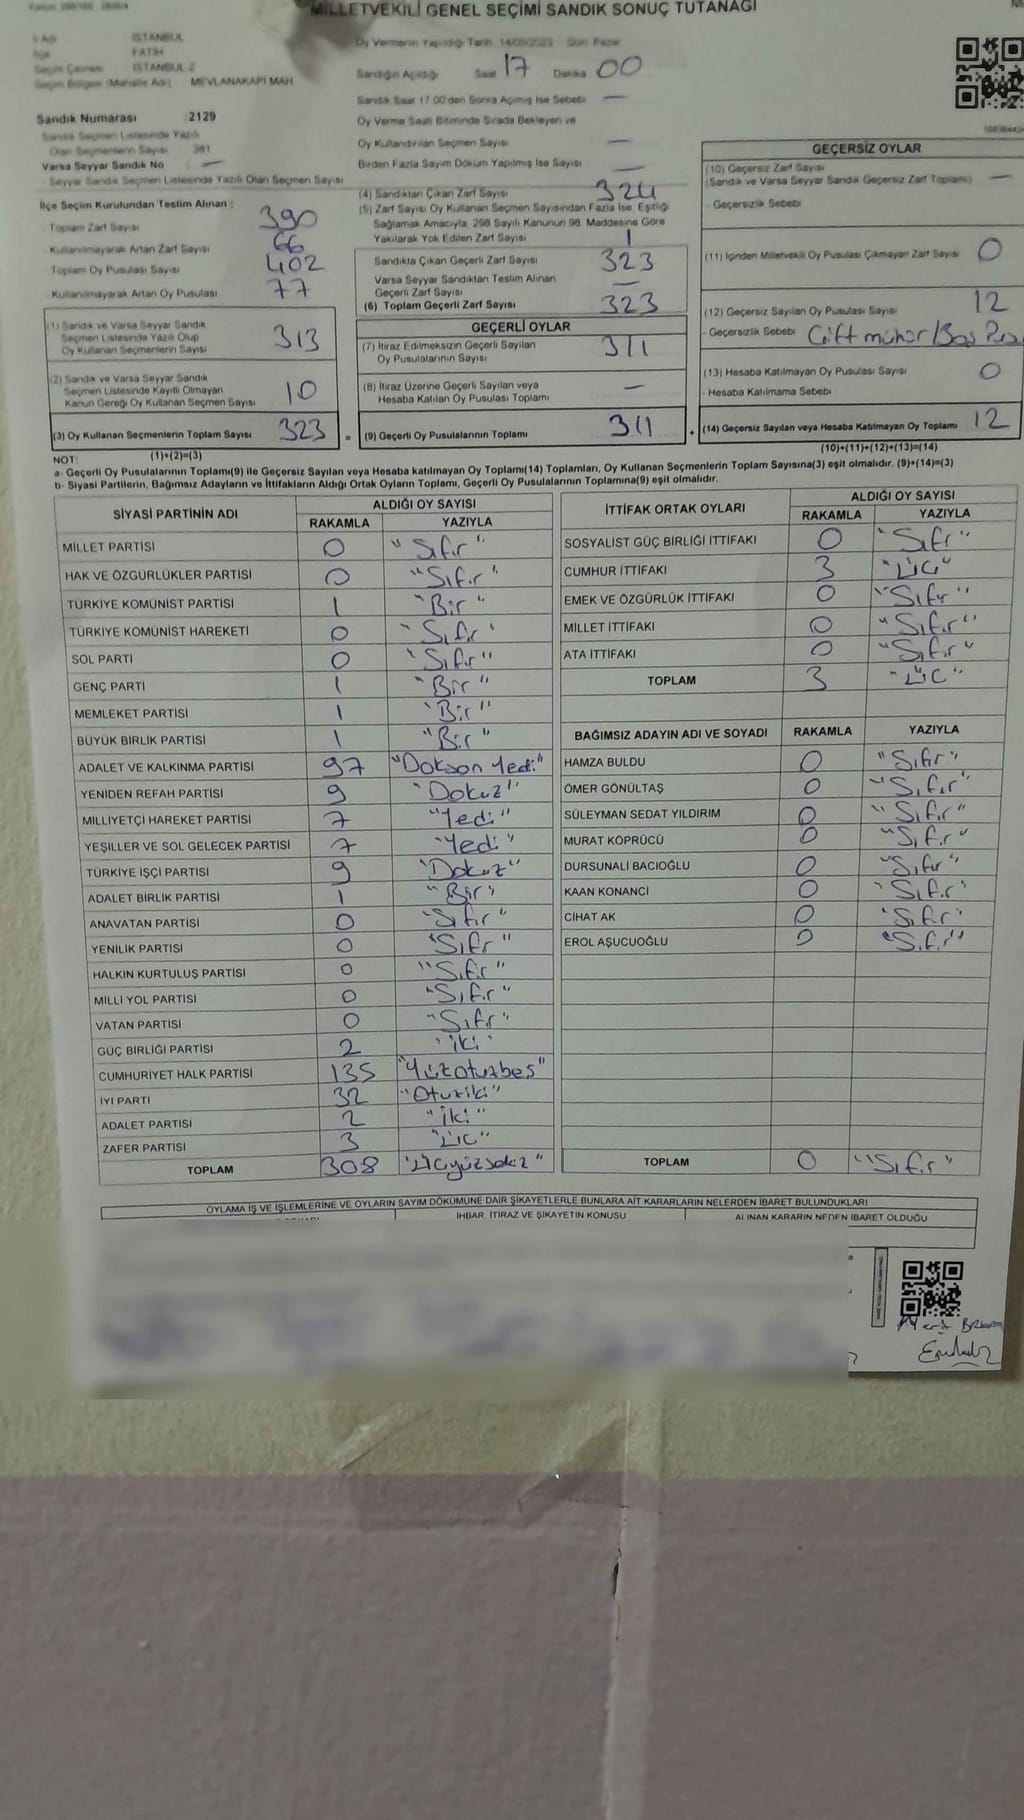 MİLLETVEKİLİ GENEL SEÇİMİ SANDIK SONUÇ TUTANAĞI
İSTANBUL
FATİH
İSTANBUL-2
Seçim Bölgesi (Mahalle Adı) MEVLANAKAPI MAH.
Sandık Numarası 2129
Sandık Seçmen Listesinde Yazılı
Olan Seçmenlerin Sayısı 381
Varsa Seyyar Sandık No —
- Seyyar Sandık Seçmen Listesinde Yazılı Olan Seçmen Sayısı
İlçe Seçim Kurulundan Teslim Alınan :
- Toplam Zarf Sayısı 390
- Kullanılmayarak Artan Zarf Sayısı 66
Toplam Oy Pusulası Sayısı 402
- Kullanılmayarak Artan Oy Pusulası 77
(1) Sandık ve Varsa Seyyar Sandık
Seçmen Listesinde Yazılı Olup
Oy Kullanan Seçmenlerin Sayısı 313
(2) Sandık ve Varsa Seyyar Sandık
Seçmen Listesinde Kayıtlı Olmayan
Kanun Gereği Oy Kullanan Seçmen Sayısı 10
(3) Oy Kullanan Seçmenlerin Toplam Sayısı 323
(1)+(2)=(3)
Oy Vermenin Yapıldığı Tarih 14/05/2023 Gün Pazar
Sandığın Açıldığı Saat 17 Dakika 00
Sandık Saat 17.00'den Sonra Açılmış İse Sebebi —
Oy Verme Saati Bitiminde Sırada Bekleyen ve
Oy Kullandırılan Seçmen Sayısı —
Birden Fazla Sayım Döküm Yapılmış İse Sayısı —
(4) Sandıktan Çıkan Zarf Sayısı 324
(5) Zarf Sayısı Oy Kullanan Seçmen Sayısından Fazla İse, Eşitliği
Sağlamak Amacıyla, 298 Sayılı Kanunun 98. Maddesine Göre
Yakılarak Yok Edilen Zarf Sayısı 1
Sandıkta Çıkan Geçerli Zarf Sayısı 323
Varsa Seyyar Sandıktan Teslim Alınan
Geçerli Zarf Sayısı —
(6) Toplam Geçerli Zarf Sayısı 323
GEÇERLİ OYLAR
(7) İtiraz Edilmeksizin Geçerli Sayılan
Oy Pusulalarının Sayısı 311
(8) İtiraz Üzerine Geçerli Sayılan veya
Hesaba Katılan Oy Pusulası Toplamı —
= (9) Geçerli Oy Pusulalarının Toplamı 311 +
GEÇERSİZ OYLAR
(10) Geçersiz Zarf Sayısı
(Sandık ve Varsa Seyyar Sandık Geçersiz Zarf Toplamı) —
- Geçersizlik Sebebi
(11) İçinden Milletvekili Oy Pusulası Çıkmayan Zarf Sayısı 0
(12) Geçersiz Sayılan Oy Pusulası Sayısı 12
- Geçersizlik Sebebi Çift mühür/Boş
(13) Hesaba Katılmayan Oy Pusulası Sayısı 0
- Hesaba Katılmama Sebebi
(14) Geçersiz Sayılan veya Hesaba Katılmayan Oy Toplamı 12
(10)+(11)+(12)+(13)=(14)
NOT:
a- Geçerli Oy Pusulalarının Toplamı(9) ile Geçersiz Sayılan veya Hesaba katılmayan Oy Toplamı(14) Toplamları, Oy Kullanan Seçmenlerin Toplam Sayısına(3) eşit olmalıdır. (9)+(14)=(3)
b- Siyasi Partilerin, Bağımsız Adayların ve İttifakların Aldığı Ortak Oyların Toplamı, Geçerli Oy Pusulalarının Toplamına(9) eşit olmalıdır.
SİYASİ PARTİNİN ADI ALDIĞI OY SAYISI
RAKAMLA YAZIYLA
MİLLET PARTİSİ 0 "Sıfır"
HAK VE ÖZGÜRLÜKLER PARTİSİ 0 "Sıfır"
TÜRKİYE KOMÜNİST PARTİSİ 1 "Bir"
TÜRKİYE KOMÜNİST HAREKETİ 0 "Sıfır"
SOL PARTİ 0 "Sıfır"
GENÇ PARTİ 1 "Bir"
MEMLEKET PARTİSİ 1 "Bir"
BÜYÜK BİRLİK PARTİSİ 1 "Bir"
ADALET VE KALKINMA PARTİSİ 97 "Dokson Yedi"
YENİDEN REFAH PARTİSİ 9 "Dokuz"
MİLLİYETÇİ HAREKET PARTİSİ 7 "Yedi"
YEŞİLLER VE SOL GELECEK PARTİSİ 7 "Yedi"
TÜRKİYE İŞÇİ PARTİSİ 9 "Dokuz"
ADALET BİRLİK PARTİSİ 1 "Bir"
ANAVATAN PARTİSİ 0 "Sıfır"
YENİLİK PARTİSİ 0 "Sıfır"
HALKIN KURTULUŞ PARTİSİ 0 "Sıfır"
MİLLİ YOL PARTİSİ 0 "Sıfır"
VATAN PARTİSİ 0 "Sıfır"
GÜÇ BİRLİĞİ PARTİSİ 2 "iki"
CUMHURİYET HALK PARTİSİ 135 "Yüzotuzbeş"
İYİ PARTİ 32 "Otuziki"
ADALET PARTİSİ 2 "iki"
ZAFER PARTİSİ 3 "Üç"
TOPLAM 308 "Üçyüzsekiz"
İTTİFAK ORTAK OYLARI ALDIĞI OY SAYISI
RAKAMLA YAZIYLA
SOSYALİST GÜÇ BİRLİĞİ İTTİFAKI 0 "Sıfır"
CUMHUR İTTİFAKI 3 "Üç"
EMEK VE ÖZGÜRLÜK İTTİFAKI 0 "Sıfır"
MİLLET İTTİFAKI 0 "Sıfır"
ATA İTTİFAKI 0 "Sıfır"
TOPLAM 3 "Üç"
BAĞIMSIZ ADAYIN ADI VE SOYADI RAKAMLA YAZIYLA
HAMZA BULDU 0 "Sıfır"
ÖMER GÖNÜLTAŞ 0 "Sıfır"
SÜLEYMAN SEDAT YILDIRIM 0 "Sıfır"
MURAT KÖPRÜCÜ 0 "Sıfır"
DURSUNALİ BACIOĞLU 0 "Sıfır"
KAAN KONANCİ 0 "Sıfır"
CİHAT AK 0 "Sıfır"
EROL AŞUCUOĞLU 0 "Sıfır"
TOPLAM 0 "Sıfır"
OYLAMA İŞ VE İŞLEMLERİNE VE OYLARIN SAYIM DÖKÜMÜNE DAİR ŞİKAYETLERLE BUNLARA AİT KARARLARIN NELERDEN İBARET BULUNDUKLARI
İHBAR, İTİRAZ VE ŞİKAYETİN KONUSU ALINAN KARARIN NEDEN İBARET OLDUĞU